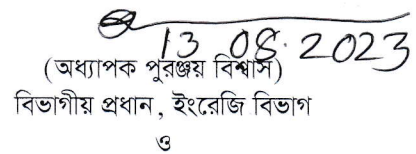 13 08. 2023
(অধ্যাপক পুরঞ্জয় বিশ্বাস)
বিভাগীয় প্রধান, ইংরেজি বিভাগ
ও